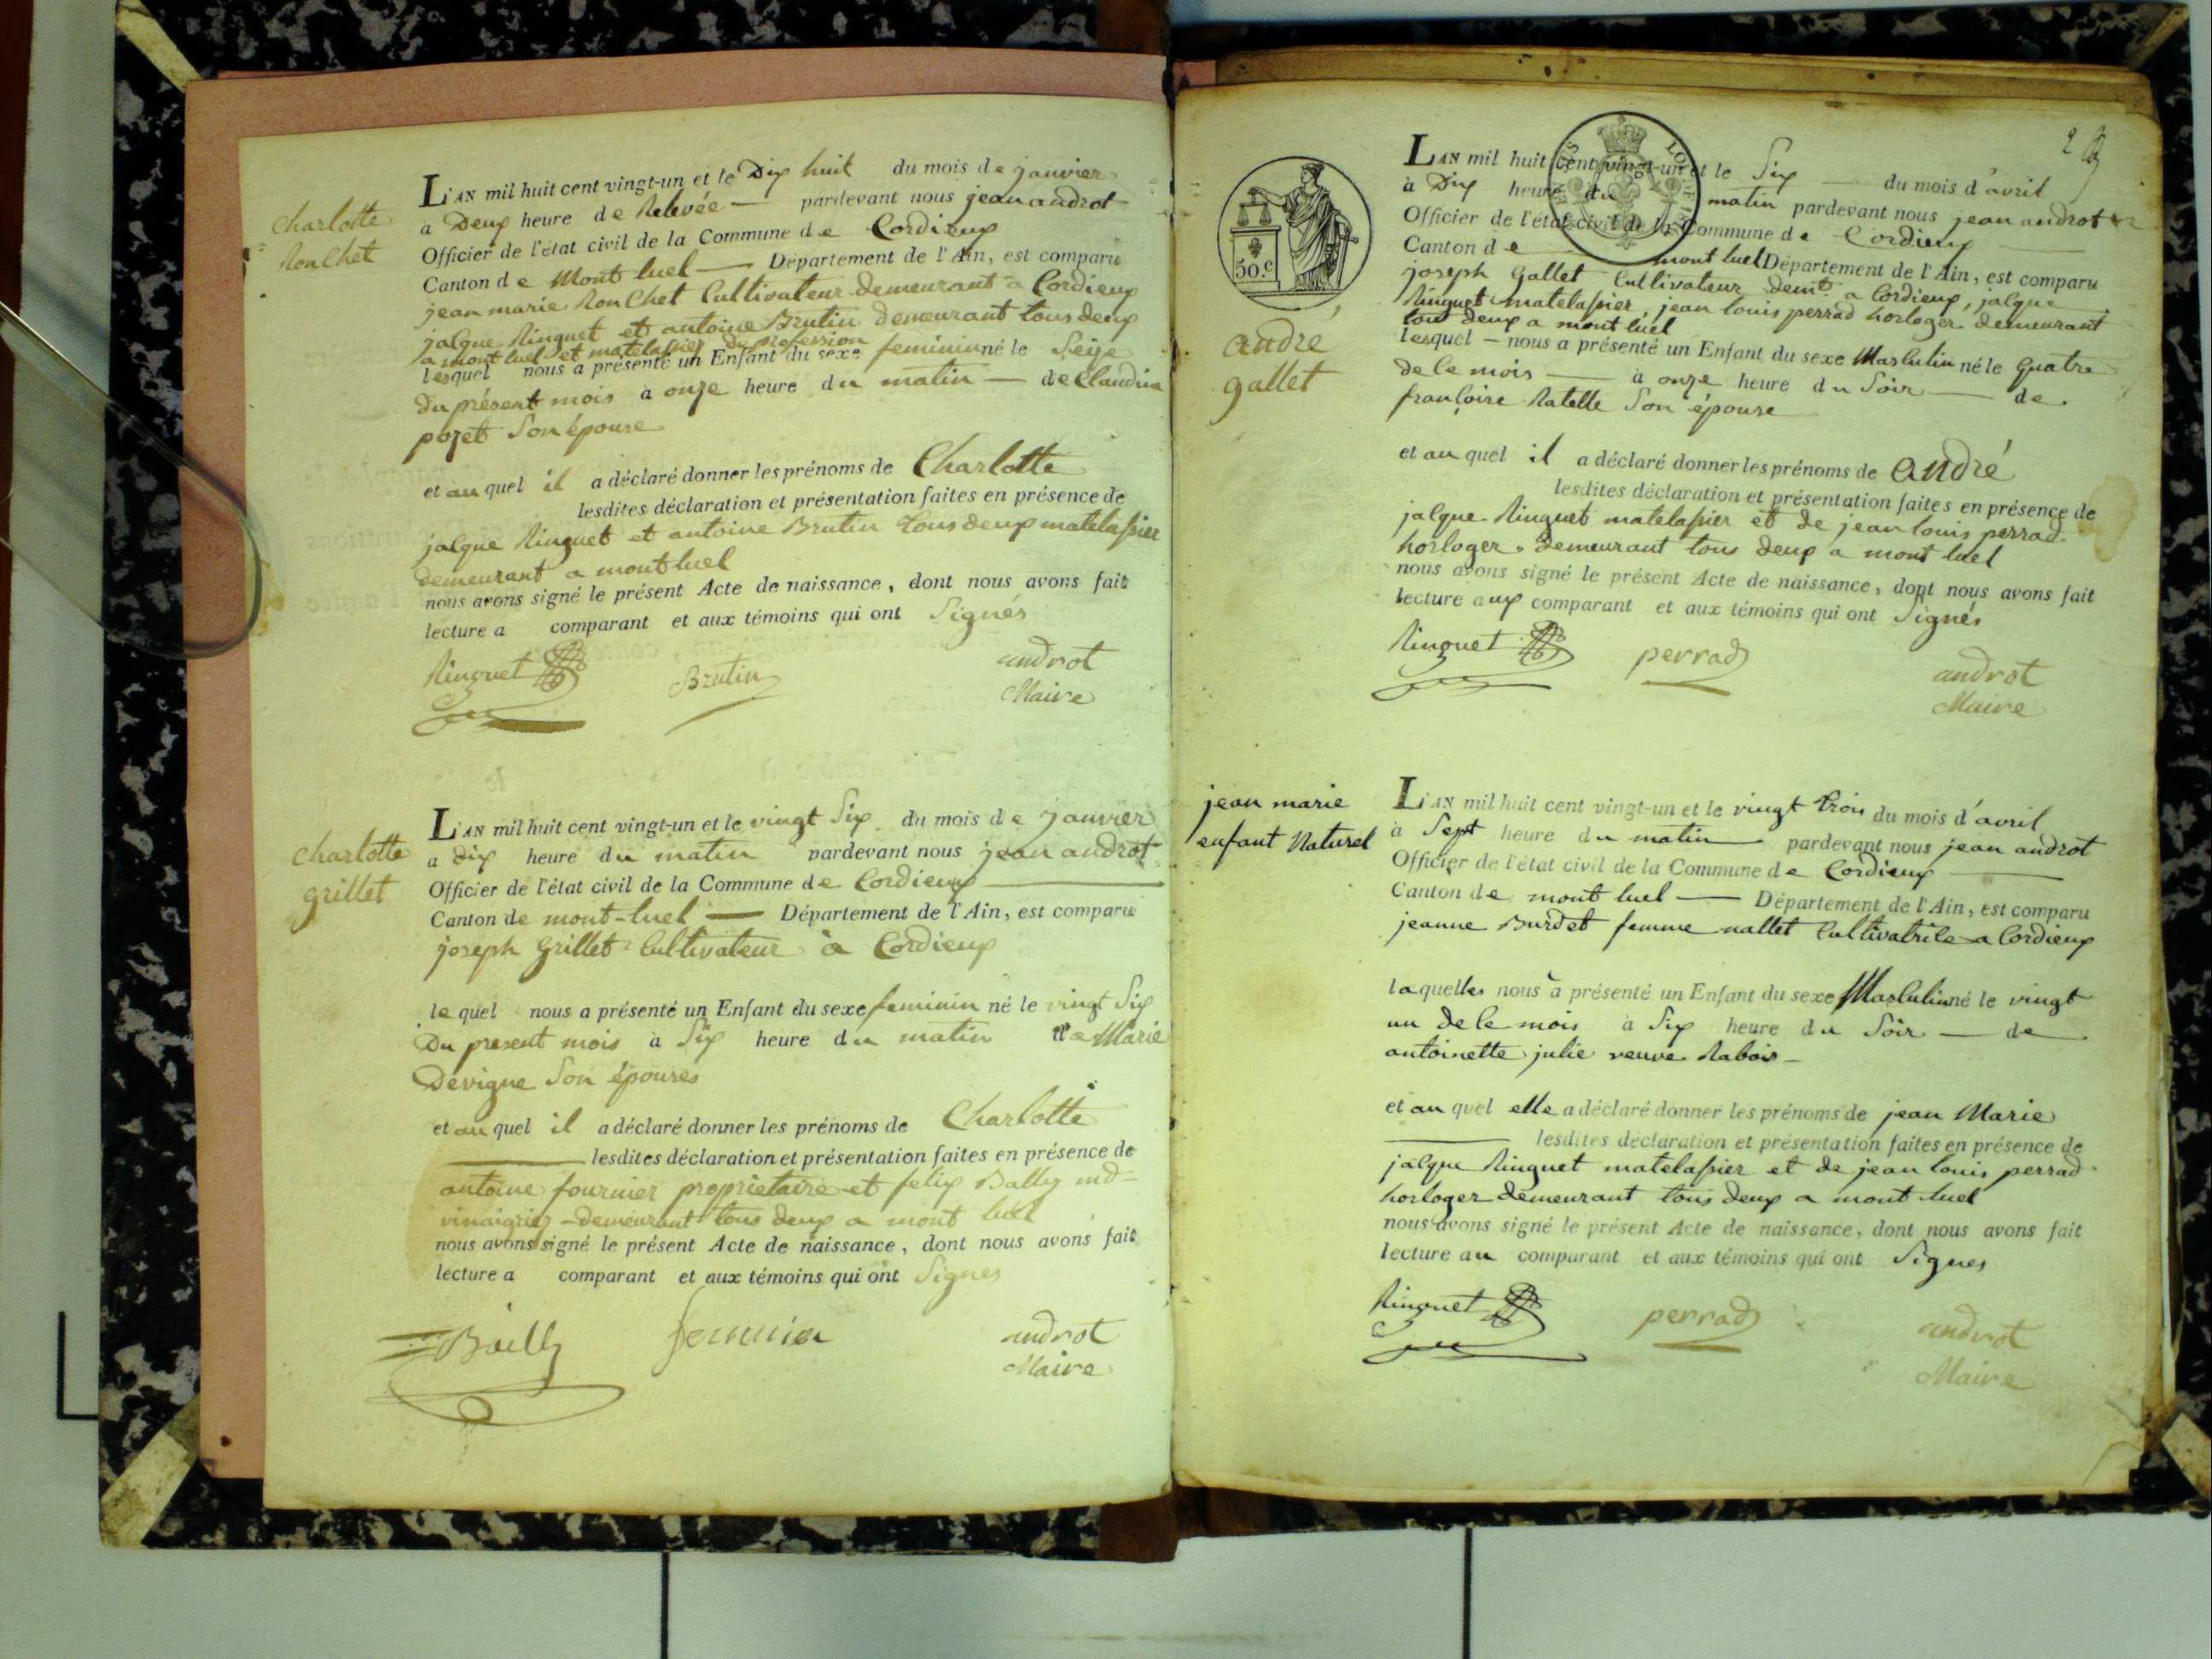 charlotte
Ronchet
L'AN mil huit cent vingt-un et le Dix huit du mois de janvier
a Deux heure de Relevée — pardevant nous jean androt
Officier de l'état civil de la Commune de Cordieux
Canton de Mont luel — Département de l'Ain, est comparu
jean marie Ronchet Cultivateur demeurant à Cordieux
jalque Ringuet et antoine Brutin demeurant tous deux
a mont luel et matelassier de profession
lesquel nous a présenté un Enfant du sexe feminin né le Seize
du présent mois à onze heure du matin — de Claudine
pozet Son épouse
et au quel il a déclaré donner les prénoms de Charlotte
lesdites déclaration et présentation faites en présence de
jalque Ringuet et antoine Brutin tous deux matelassier
demeurant a mont luel
nous avons signé le présent Acte de naissance, dont nous avons fait
lecture a comparant et aux témoins qui ont Signés
Ringuet
Brutin
androt
Maire
charlotte
grillet
L'AN mil huit cent vingt-un et le vingt Six du mois de janvier
a dix heure du matin pardevant nous jean androt
Officier de l'état civil de la Commune de Cordieux
Canton de mont-luel — Département de l'Ain, est comparu
joseph Grillet Cultivateur à Cordieux
le quel nous a présenté un Enfant du sexe feminin né le vingt Six
Du present mois à Six heure du matin de Marie
Devigne Son épouses
et au quel il a déclaré donner les prénoms de Charlotte
lesdites déclaration et présentation faites en présence de
antoine fournier proprietaire et felix Bally md-
vinaigrier - demeurant tous deux a mont luel
nous avons signé le présent Acte de naissance, dont nous avons fait
lecture a comparant et aux témoins qui ont Signes
Bailly
fournier
androt
Maire
2
50.c
andré
gallet
L'AN mil huit cent vingt-un et le Six — du mois d'avril
à Dix heure du matin pardevant nous jean androt
Officier de l'état civil de la Commune de Cordieux
Canton de mont luel Département de l'Ain, est comparu
joseph Gallet Cultivateur demt. a Cordieux, jalque
Ringuet matelassier, jean louis perrad horloger demeurant
tous deux a mont luel
lesquel — nous a présenté un Enfant du sexe Masculin né le Quatre
de ce mois — à onze heure du Soir — de
françoise Ratelle Son épouse
et au quel il a déclaré donner les prénoms de André
lesdites déclaration et présentation faites en présence de
jalque Ringuet matelassier et de jean louis perrad
horloger demeurant tous deux a mont luel
nous avons signé le présent Acte de naissance, dont nous avons fait
lecture aux comparant et aux témoins qui ont Signés
Ringuet
perrad
androt
Maire
jean marie
enfant Naturel
L'AN mil huit cent vingt-un et le vingt trois du mois d'avril
à Sept heure du matin — pardevant nous jean androt
Officier de l'état civil de la Commune de Cordieux
Canton de mont luel — Département de l'Ain, est comparu
jeanne Burdet femme nallet Cultivatrice a Cordieux
laquelles nous à présenté un Enfant du sexe Masculin né le vingt
un de ce mois à Six heure du Soir — de
antoinette julie veuve Rabois —
et au quel elle a déclaré donner les prénoms de jean Marie
lesdites déclaration et présentation faites en présence de
jalque Ringuet matelassier et de jean louis perrad
horloger demeurant tous deux a mont luel
nous avons signé le présent Acte de naissance, dont nous avons fait
lecture au comparant et aux témoins qui ont Signes
Ringuet
perrad
androt
Maire